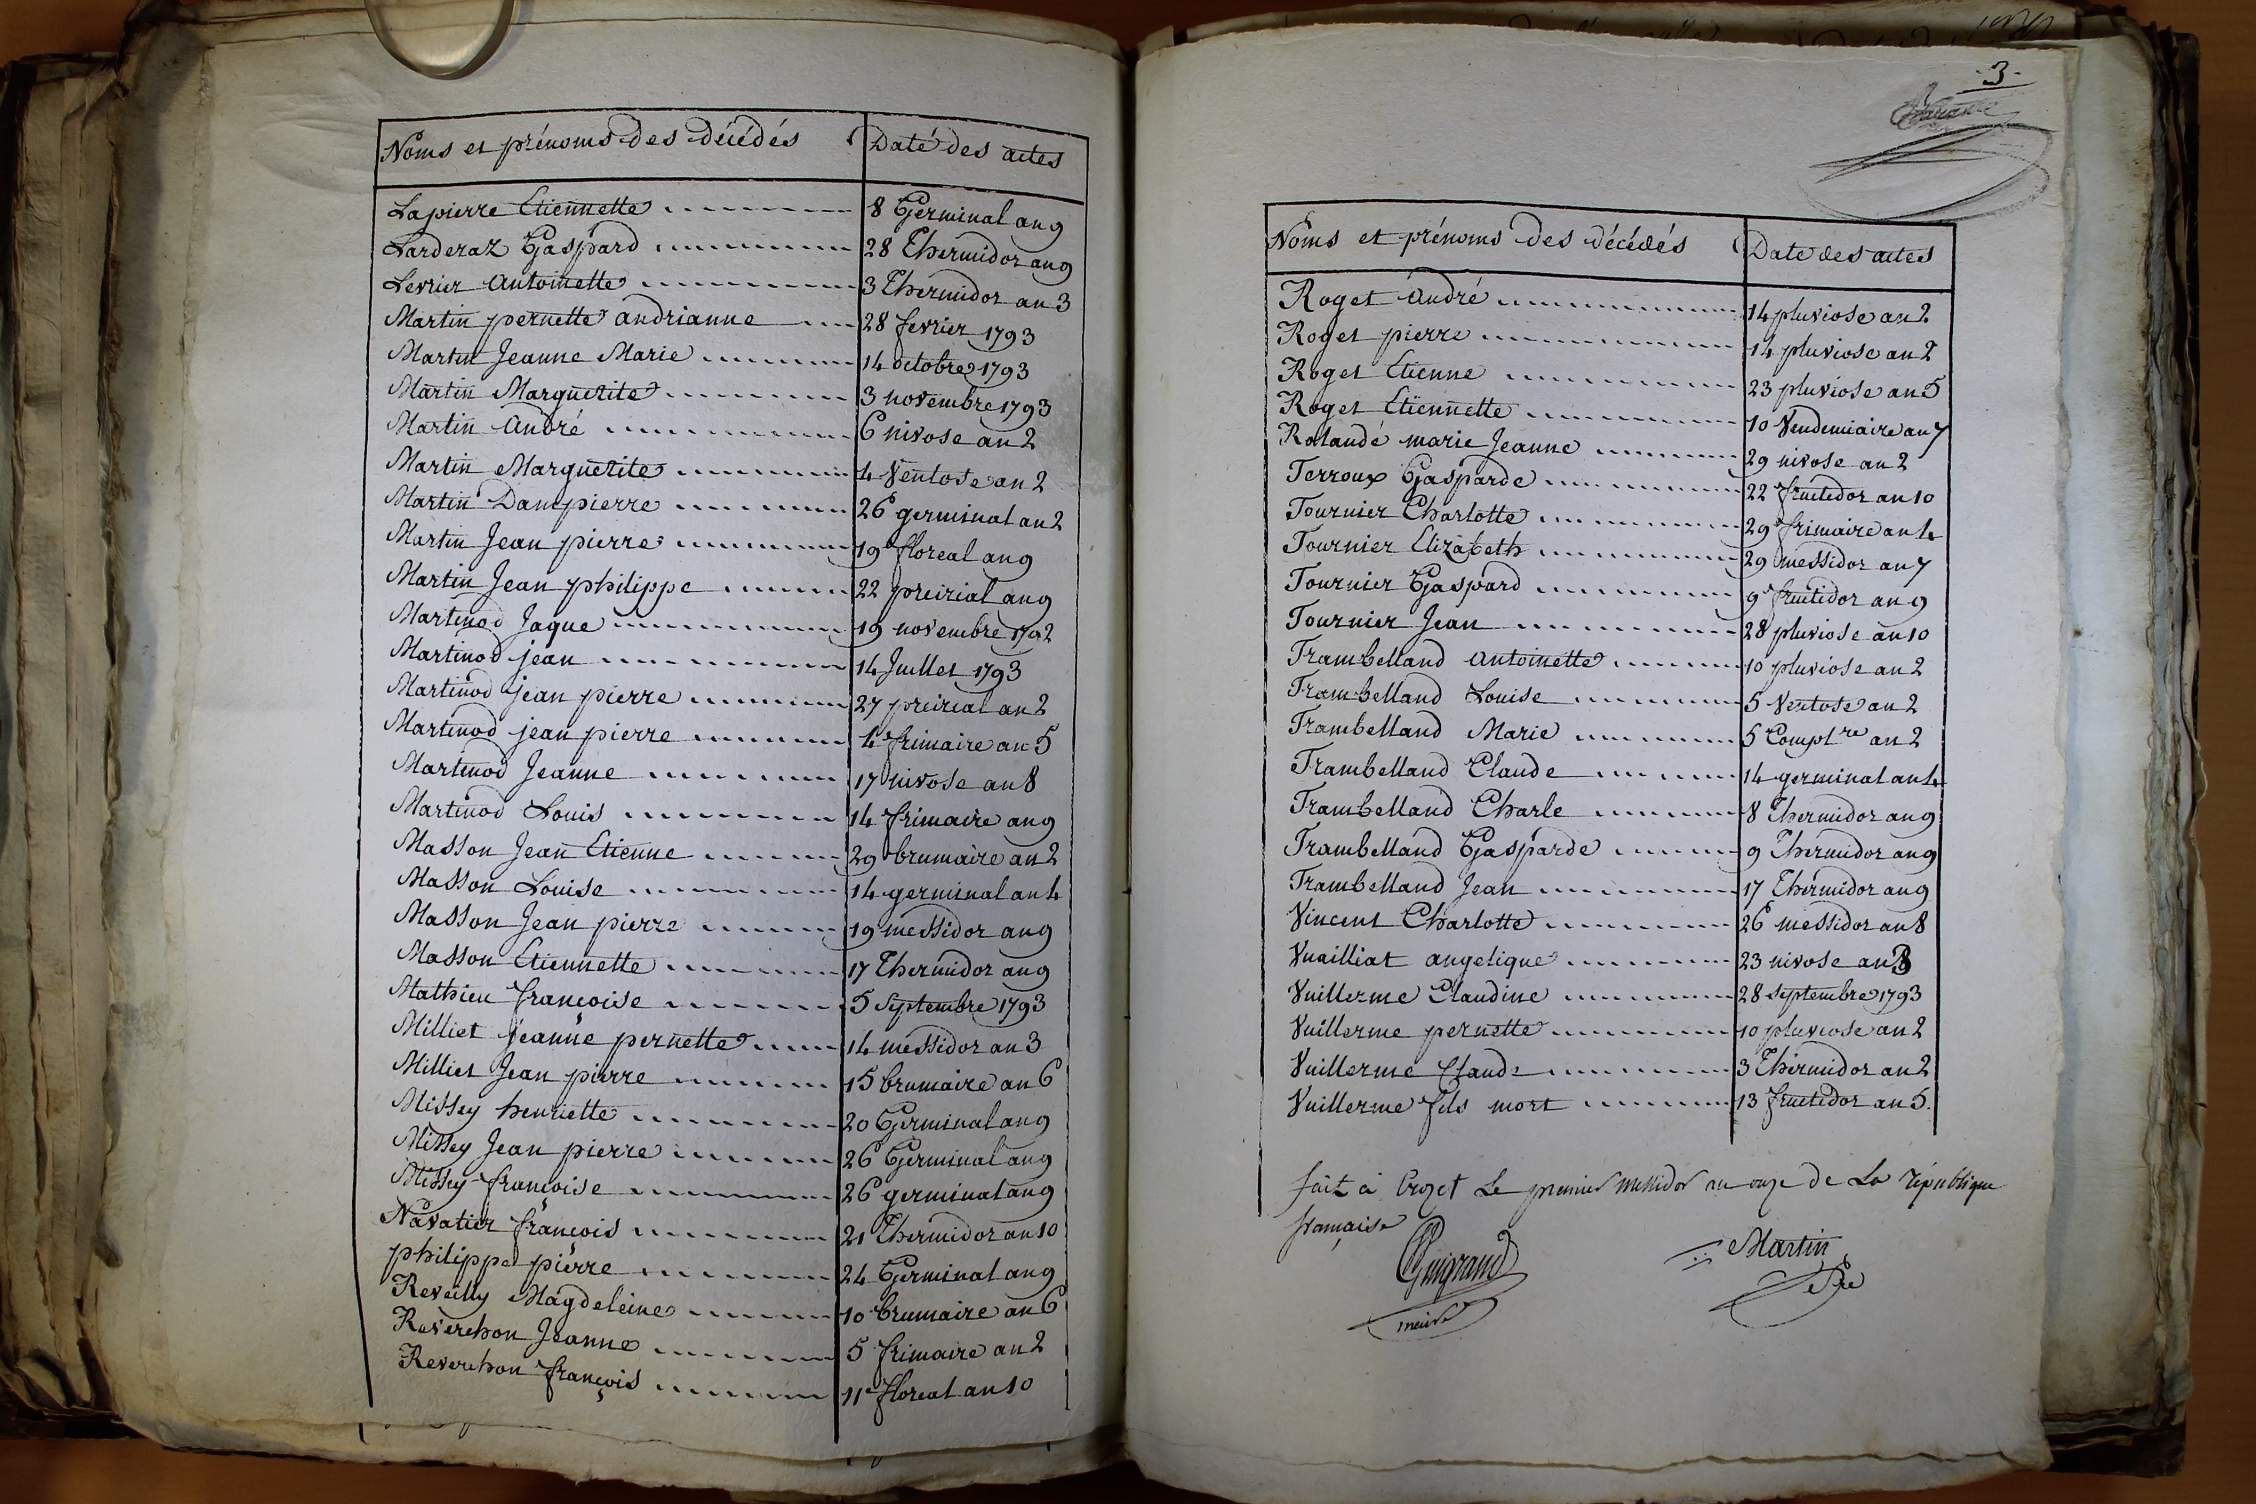 Noms et prénoms des décédés Date des actes
Lapierre Etiennette 8 Germinal an 9
Larderaz Gaspard 28 Thermidor an 9
Levrier antoinette 3 Thermidor an 3
Martin pernette andrianne 28 fevrier 1793
Martin Jeanne Marie 14 octobre 1793
Martin Marguerite 3 novembre 1793
Martin André 6 nivose an 2
Martin Marguerite 4 Ventose an 2
Martin Dam pierre 26 germinal an 2
Martin Jean pierre 19 floreal an 9
Martin Jean philippe 22 preirial an 9
Martinod Jaque 19 novembre 1792
Martinod jean 14 Juillet 1793
Martinod jean pierre 27 preirial an 2
Martinod jean pierre 4 frimaire an 5
Martinod Jeanne 17 nivose an 8
Martinod Louis 14 frimaire an 9
Masson Jean Etienne 29 brumaire an 2
Masson Louise 14 germinal an 4
Masson Jean pierre 19 messidor an 9
Masson Etiennette 17 Thermidor an 9
Mathieu françoise 5 Septembre 1793
Milliet jeanne pernette 14 messidor an 3
Milliet Jean pierre 15 brumaire an 6
Missey henriette 20 Germinal an 9
Missey Jean pierre 26 Germinal an 9
Missey françoise 26 germinal an 9
Navatier françois 21 Thermidor an 10
philippe pierre 24 Germinal an 9
Reveilly Magdeleine 10 brumaire an 6
Reverchon Jeanne 5 frimaire an 2
Reverchon françois 11e floreal an 10
-3-
Noms et prénoms des décédés Date des actes
Roget André 14 pluviose an 2
Roget pierre 14 pluviose an 2
Roget Etienne 23 pluviose an 5
Roget Etiennette 10 Vendemiaire an 7
Rolandé marie Jeanne 29 nivose an 2
Terroux Gasparde 22 fructidor an 10
Tournier Charlotte 29 frimaire an 4
Tournier Elizabeth 29 messidor an 7
Tournier Gaspard 9 fructidor an 9
Tournier Jean 28 pluviose an 10
Trambelland antoinette 10 pluviose an 2
Trambelland Louise 5 Ventose an 2
Trambelland Marie 5 Complre an 2
Trambelland Claude 14 germinal an 4
Trambelland Charle 8 Thermidor an 9
Trambelland Gasparde 9 Thermidor an 9
Trambelland Jean 17 Thermidor an 9
Vincent Charlotte 26 messidor an 8
Vuailliat angelique 23 nivose an
Vuillerme Claudine 28 septembre 1793
Vuillerme pernette 10 pluviose an 2
Vuillerme Claude 3 Thermidor an 2
Vuillerme fils mort 13 fructidor an 5.
fait à Crozet Le premier messidor an onze de La république
française
Guigrand Martin
meire